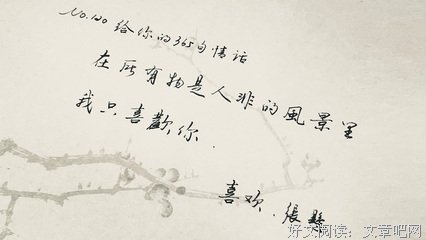 No.100 给你的365句情话
在所有物是人非的風景里
我只喜歡你.
喜欢.張懸
好文阅读:文章吧网